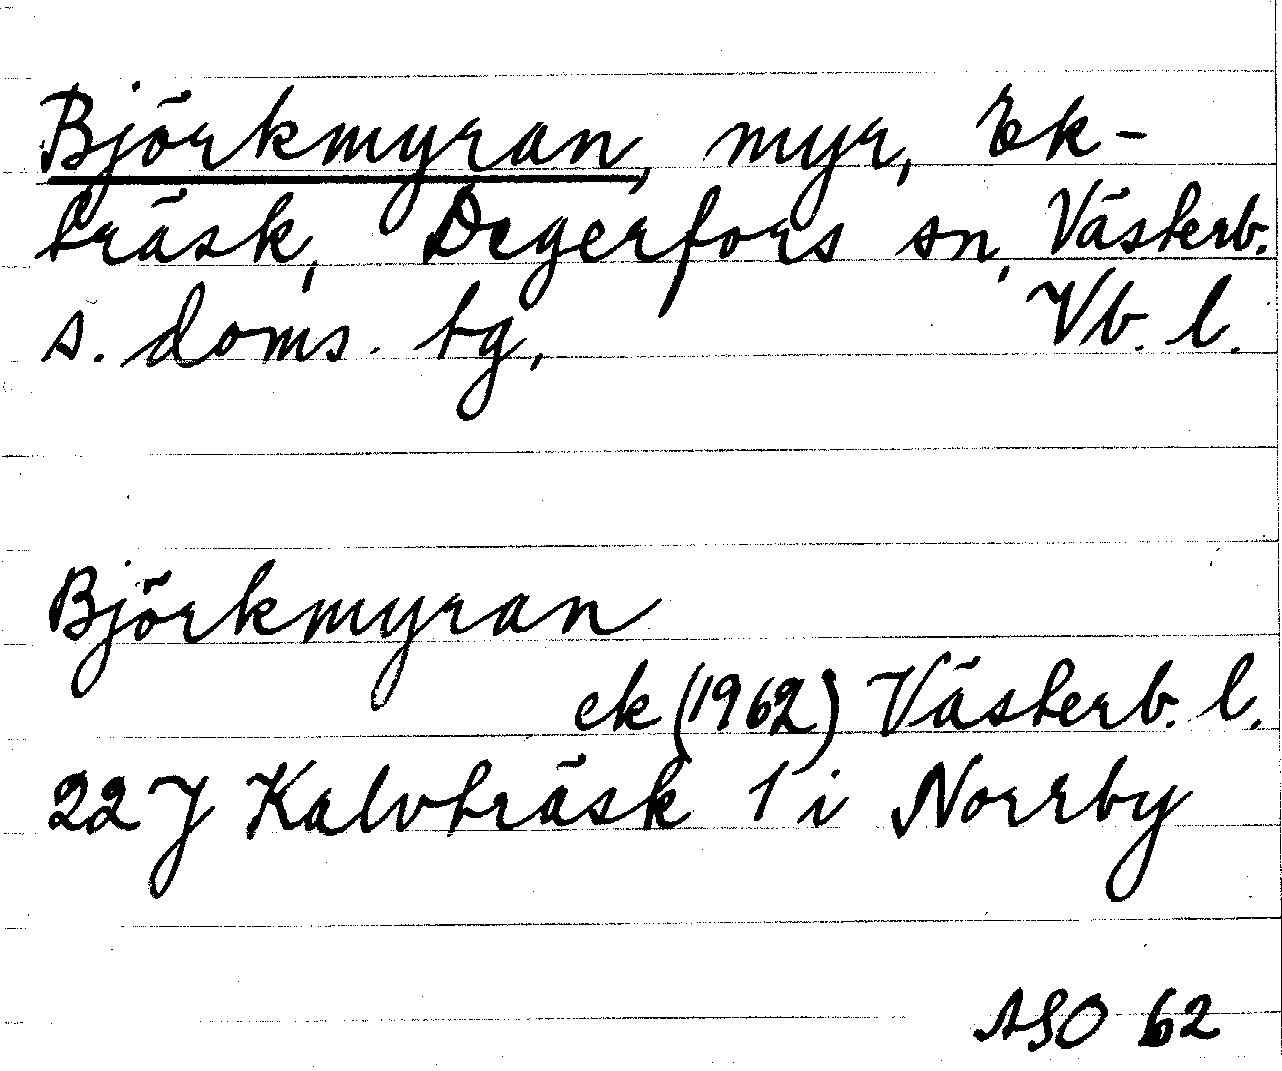 Björkmyran, myr, Ek-
träsk, Degerfors sn, Västerb.
s. doms. tg, Vb. l.
Björkmyran
ek (1962) Västerb. l.
22 J Kalvträsk 1 i Norrby
ASO 62